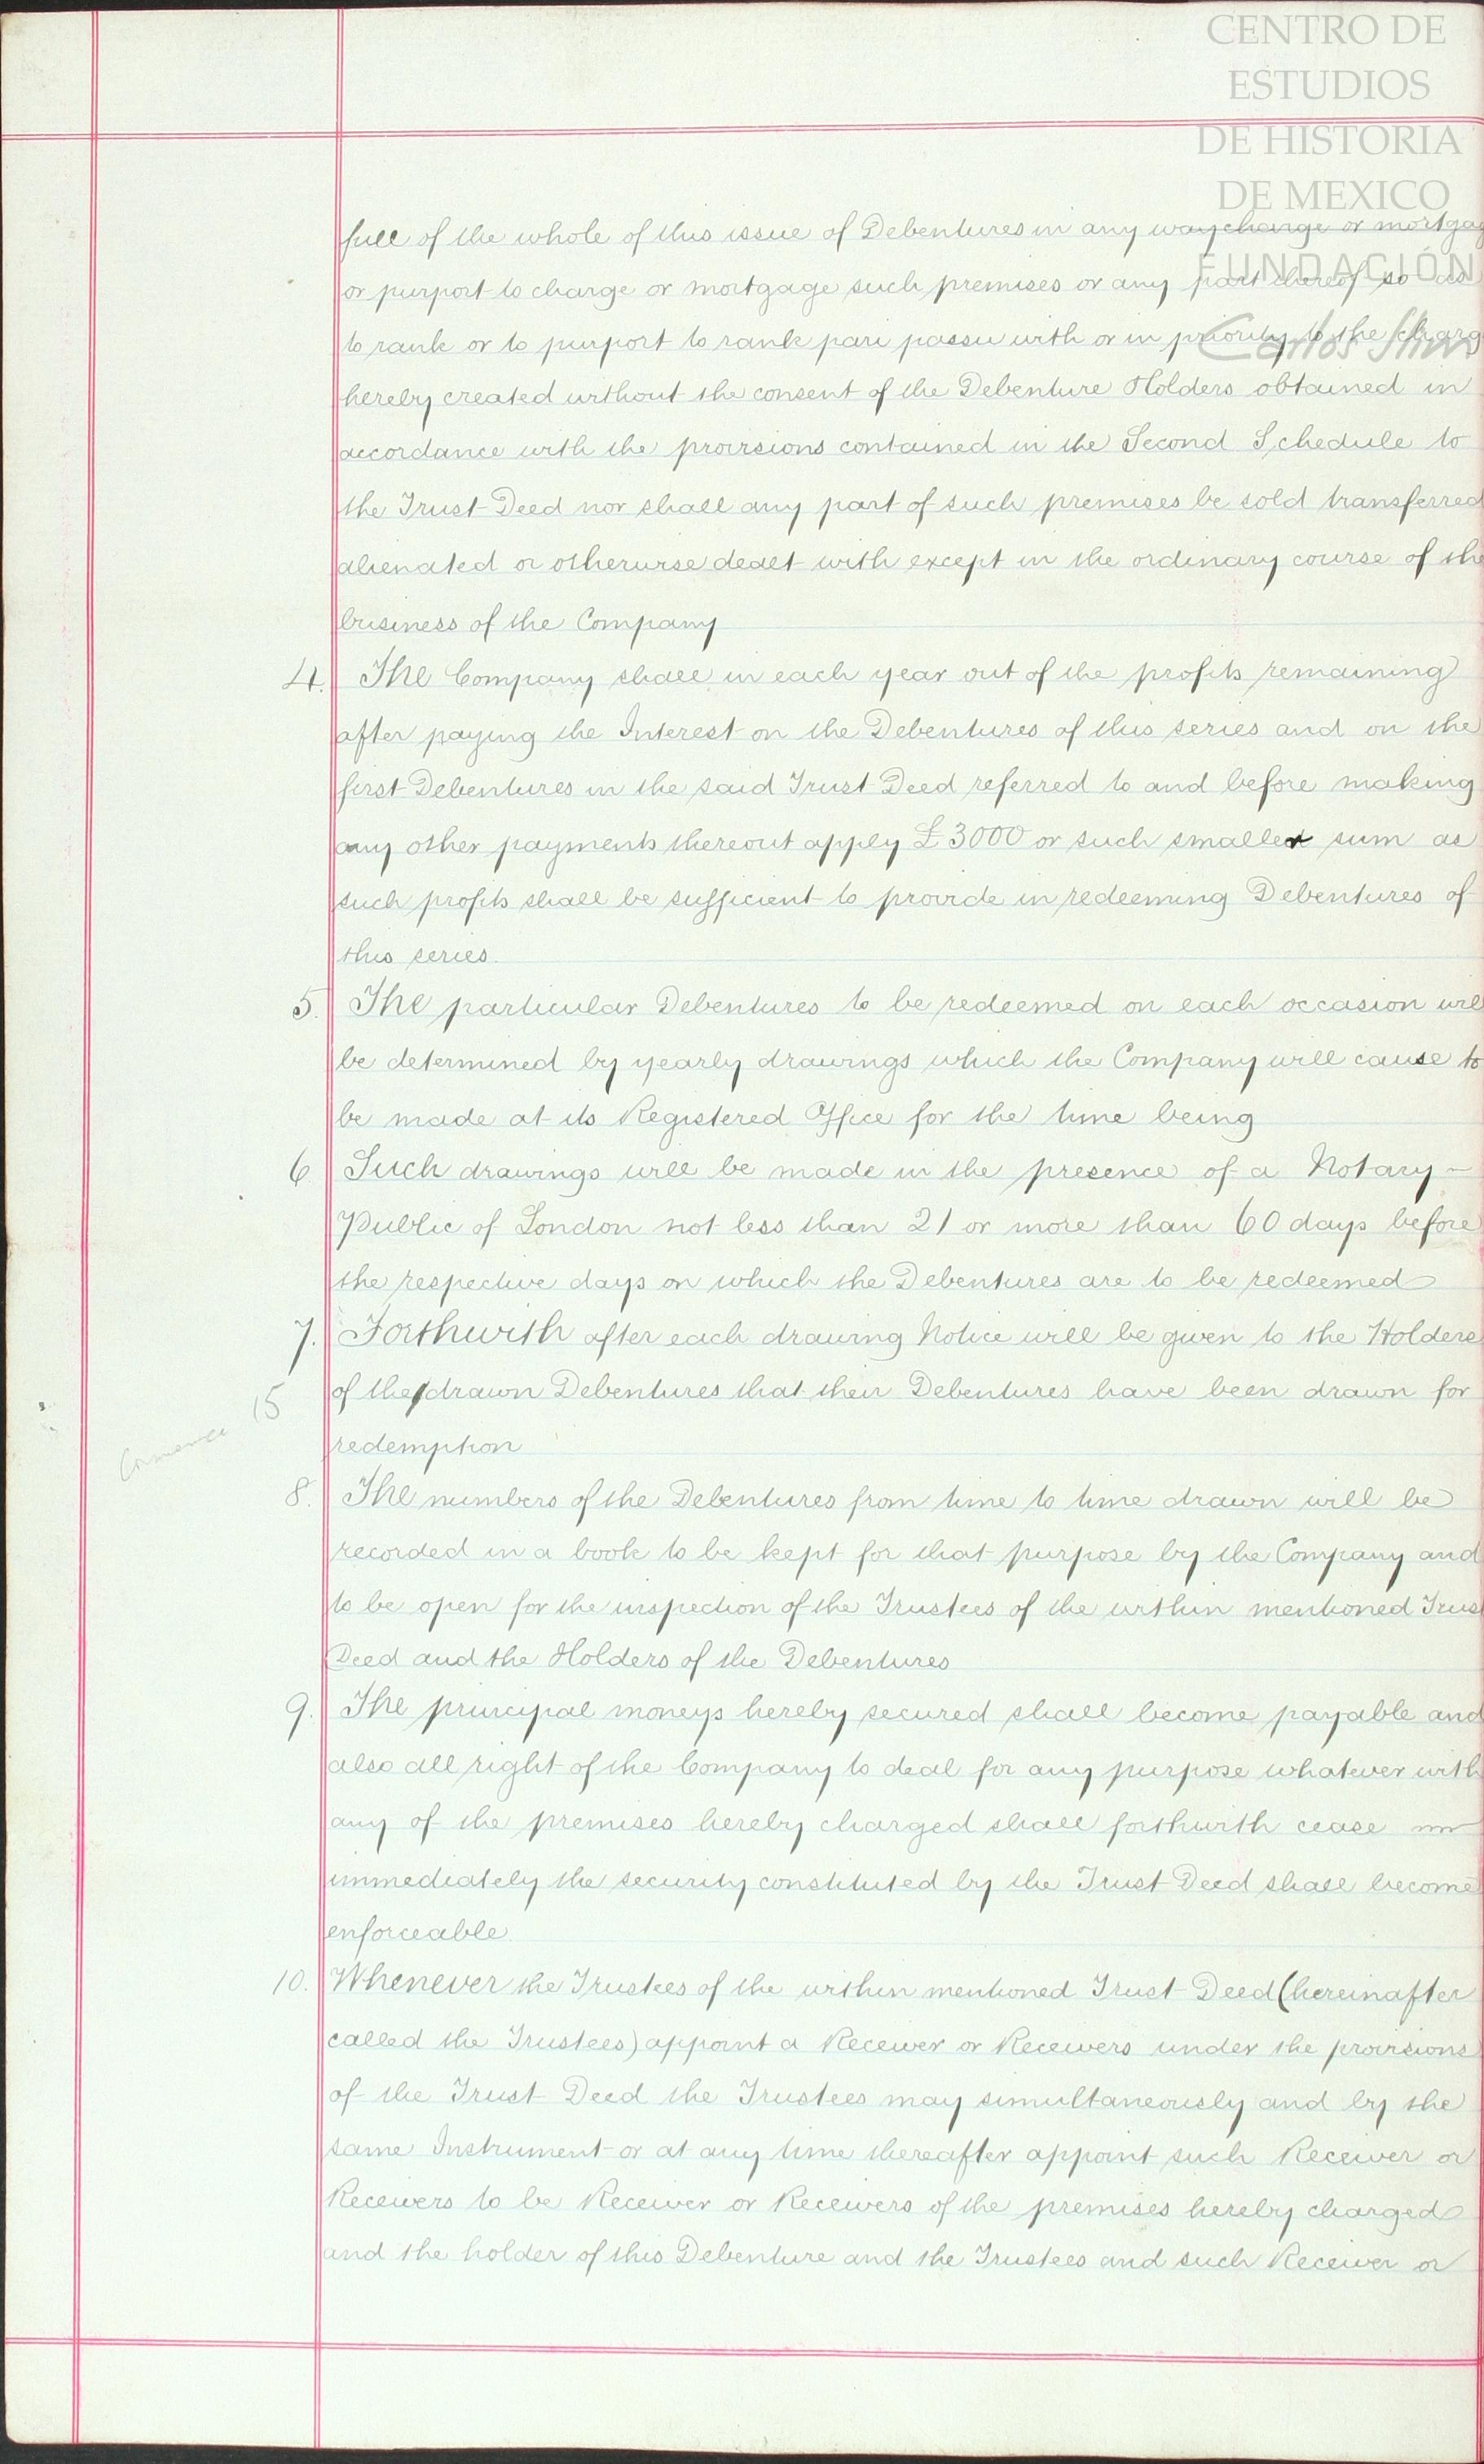 CENTRO DE
ESTUDIOS
DE HISTORIA
DE MEXICO
FUNDACIÓN
Carlos Slim
full of the whole of this issue of Debentures in any way charge or mortgag
or purport to charge or mortgage such premises or any part thereof so as
to rank or to purport to rank pari passu with or in priority to the charg
hereby created without the consent of the Debenture Holders obtained in
accordance with the provisions contained in the Second Schedule to
the Trust Deed nor shall any part of such premises be sold transferred
alienated or otherwise dealt with except in the ordinary course of the
business of the Company
4. The Company shall in each year out of the profits remaining
after paying the Interest on the Debentures of this series and on the
first Debentures in the said Trust Deed referred to and before making
any other payments thereout apply £3000 or such smaller sum as
such profits shall be sufficient to provide in redeeming Debentures of
this series.
5. The particular Debentures to be redeemed on each occasion will
be determined by yearly drawings which the Company will cause to
be made at its Registered Office for the time being
6 Such drawings will be made in the presence of a Notary
Public of London not less than 21 or more than 60 days before
the respective days on which the Debentures are to be redeemed
7. Forthwith after each drawing Notice will be given to the Holders
15 of the drawn Debentures that their Debentures have been drawn for
Commence
redemption
8. The numbers of the Debentures from time to time drawn will be
recorded in a book to be kept for that purpose by the Company and
to be open for the inspection of the Trustees of the within mentioned Trus
Deed and the Holders of the Debentures
9. The principal moneys hereby secured shall become payable and
also all right of the Company to deal for any purpose whatever with
any of the premises hereby charged shall forthwith cease
immediately the security constituted by the Trust Deed shall become
enforceable.
10. Whenever the Trustees of the within mentioned Trust Deed (hereinafter
called the Trustees) appoint a Receiver or Receivers under the provisions
of the Trust Deed the Trustees may simultaneously and by the
same Instrument or at any time thereafter appoint such Receiver or
Receivers to be Receiver or Receivers of the premises hereby charged
and the holder of this Debenture and the Trustees and such Receiver or